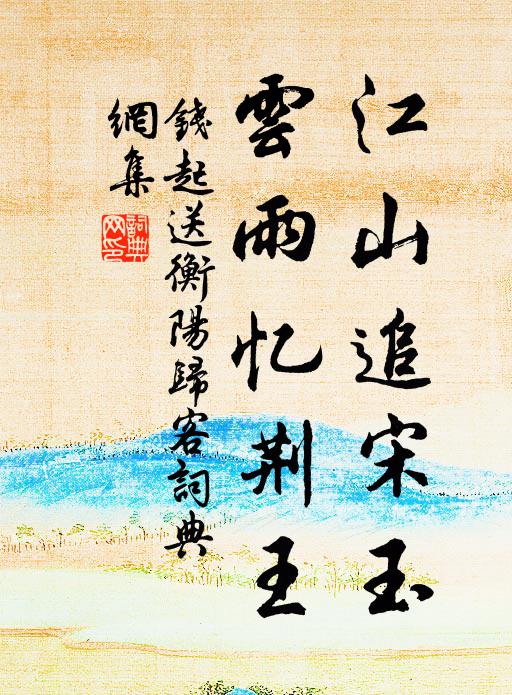 江山追宋玉
雲雨忆荆王
錢起送衡陽歸客詞典
網集
詞典网印